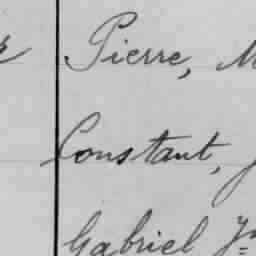 Pierre,
Constant,
Gabriel